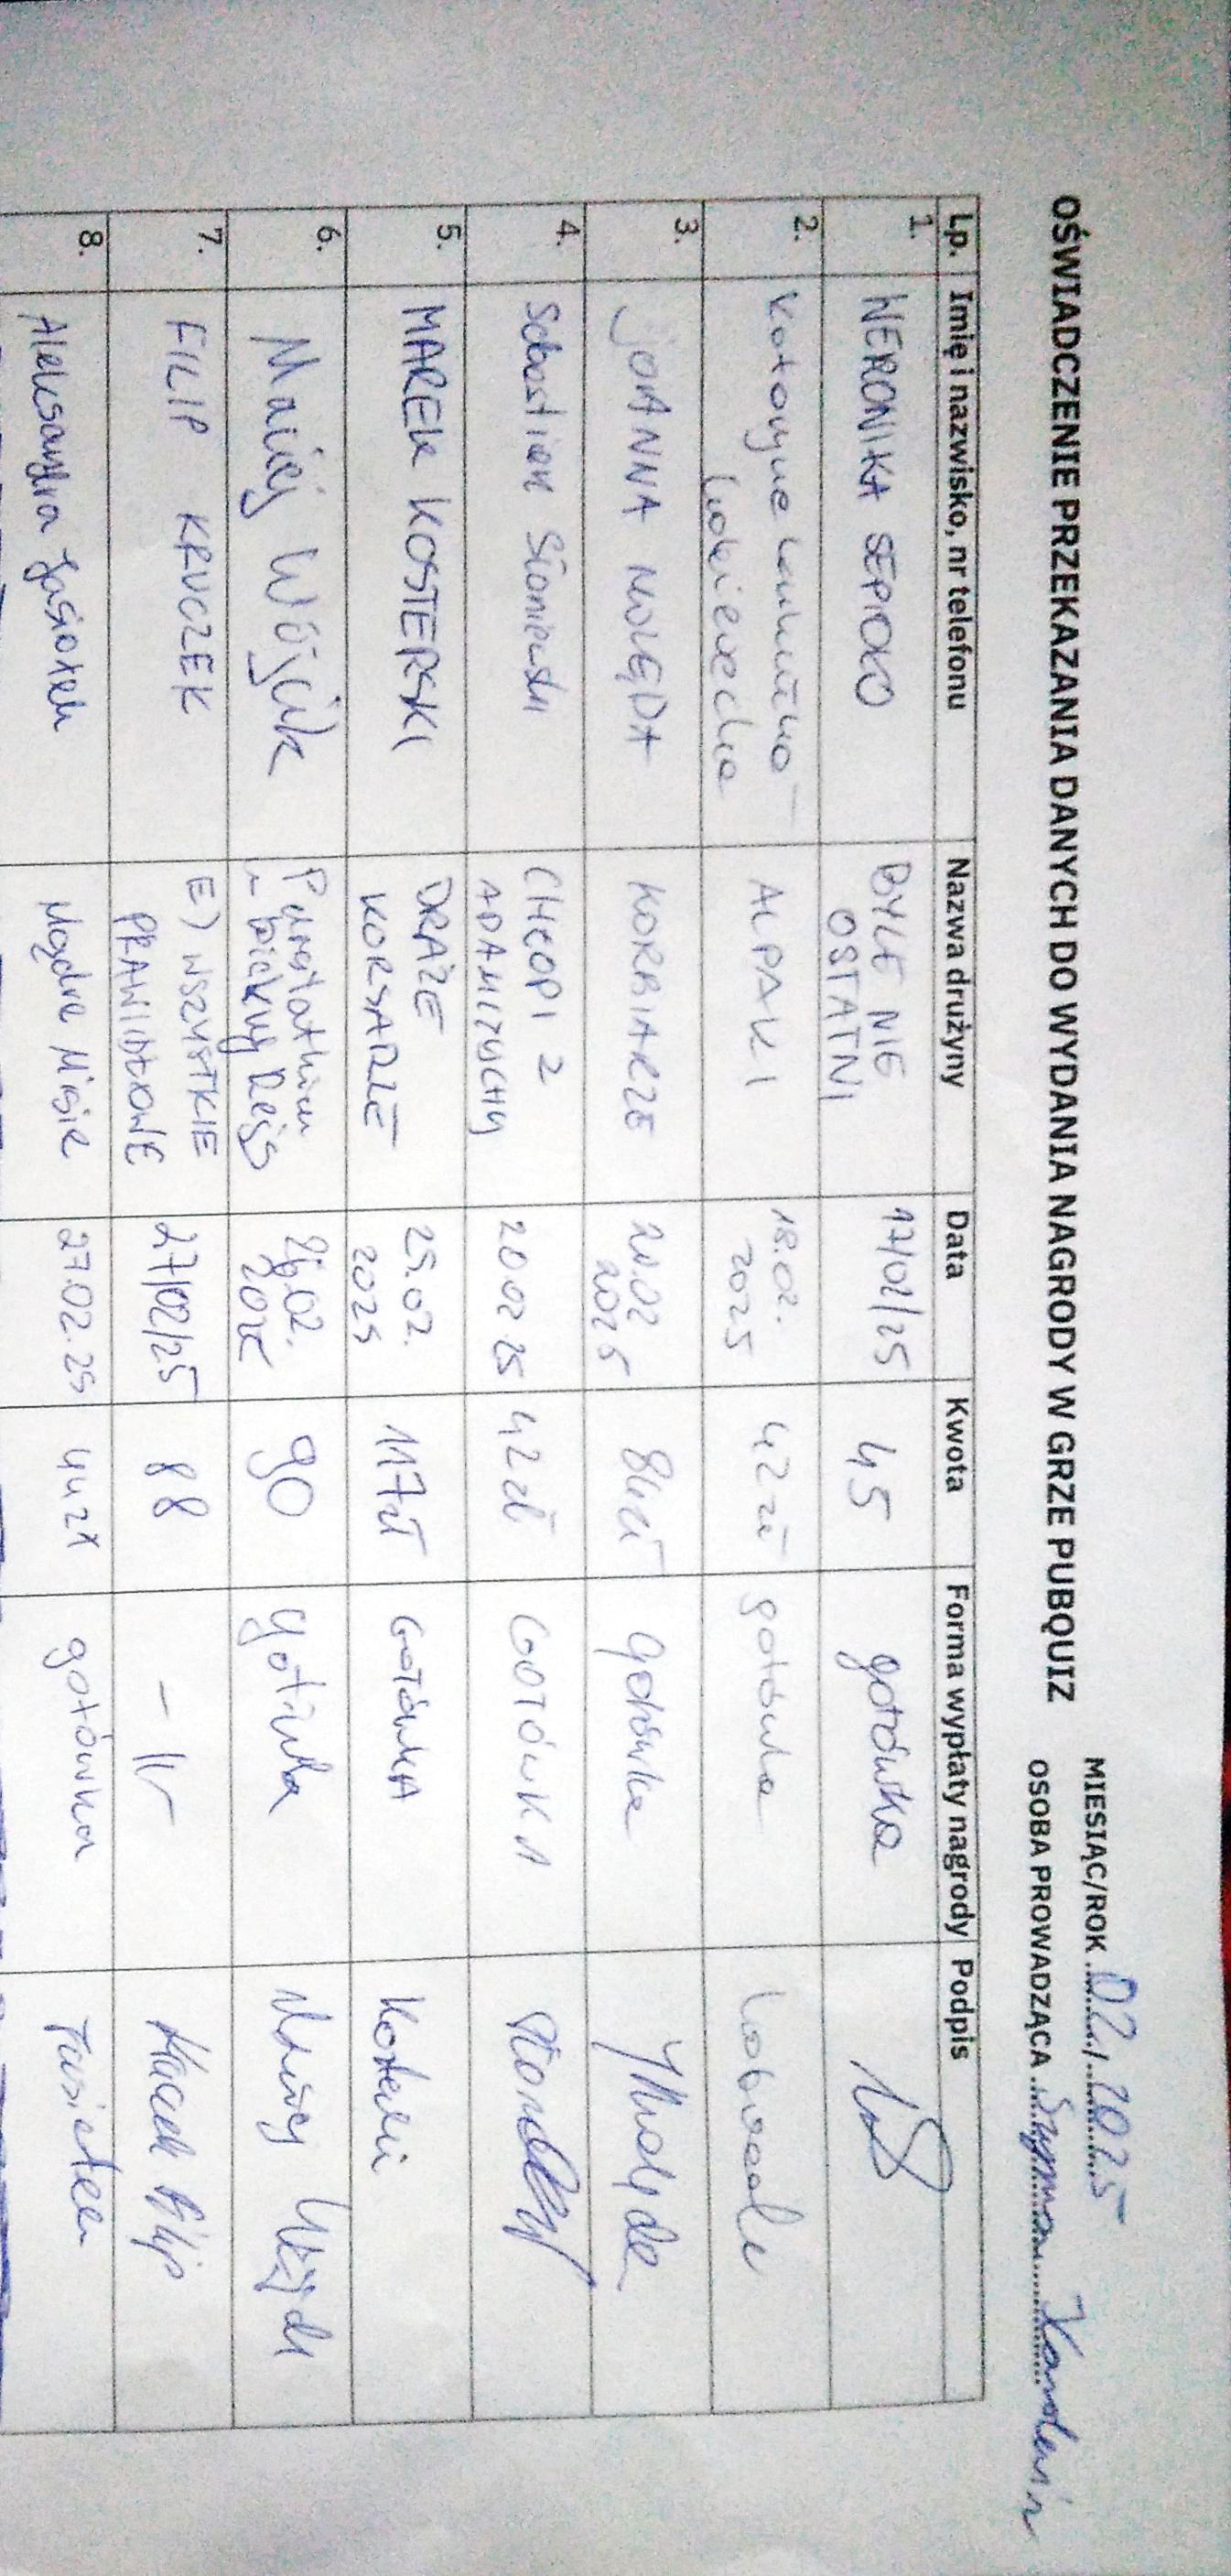 OŚWIADCZENIE PRZEKAZANIA DANYCH DO WYDANIA NAGRODY W GRZE PUBQUIZ
MIESIĄC/ROK 02, 2025
OSOBA PROWADZĄCA Szymon
Lp. Imię i nazwisko, nr telefonu Nazwa drużyny Data Kwota Forma wypłaty nagrody Podpis
1. WERONIKA SEPIOŁO BYLE NIE OSTATNI 17/02/25 45 gotówka
2. ALPAKI 18.02. 2025 42 zł gotówka
3. JOANNA KORBIARZE 20.02 2025 84 zł gotówka
4. Sebastian CHŁOPI Z ADAMITUCHY 20 02 25 42 zł GOTÓWKA
5. MAREK KOSTERSKI DRAŻE KORSARZE 25.02. 2025 117 zł GOTÓWKA
6. Maciej Wójcik 02. 90 gotówka Maciej Wójcik
7. FILIP KRUCZEK E) WSZYSTKIE PRAWIDŁOWE 27/02/25 88 -||- Filip
8. Aleksandra Jasiołek Mądre Misie 27.02.25 44 zł gotówka Jasiołek